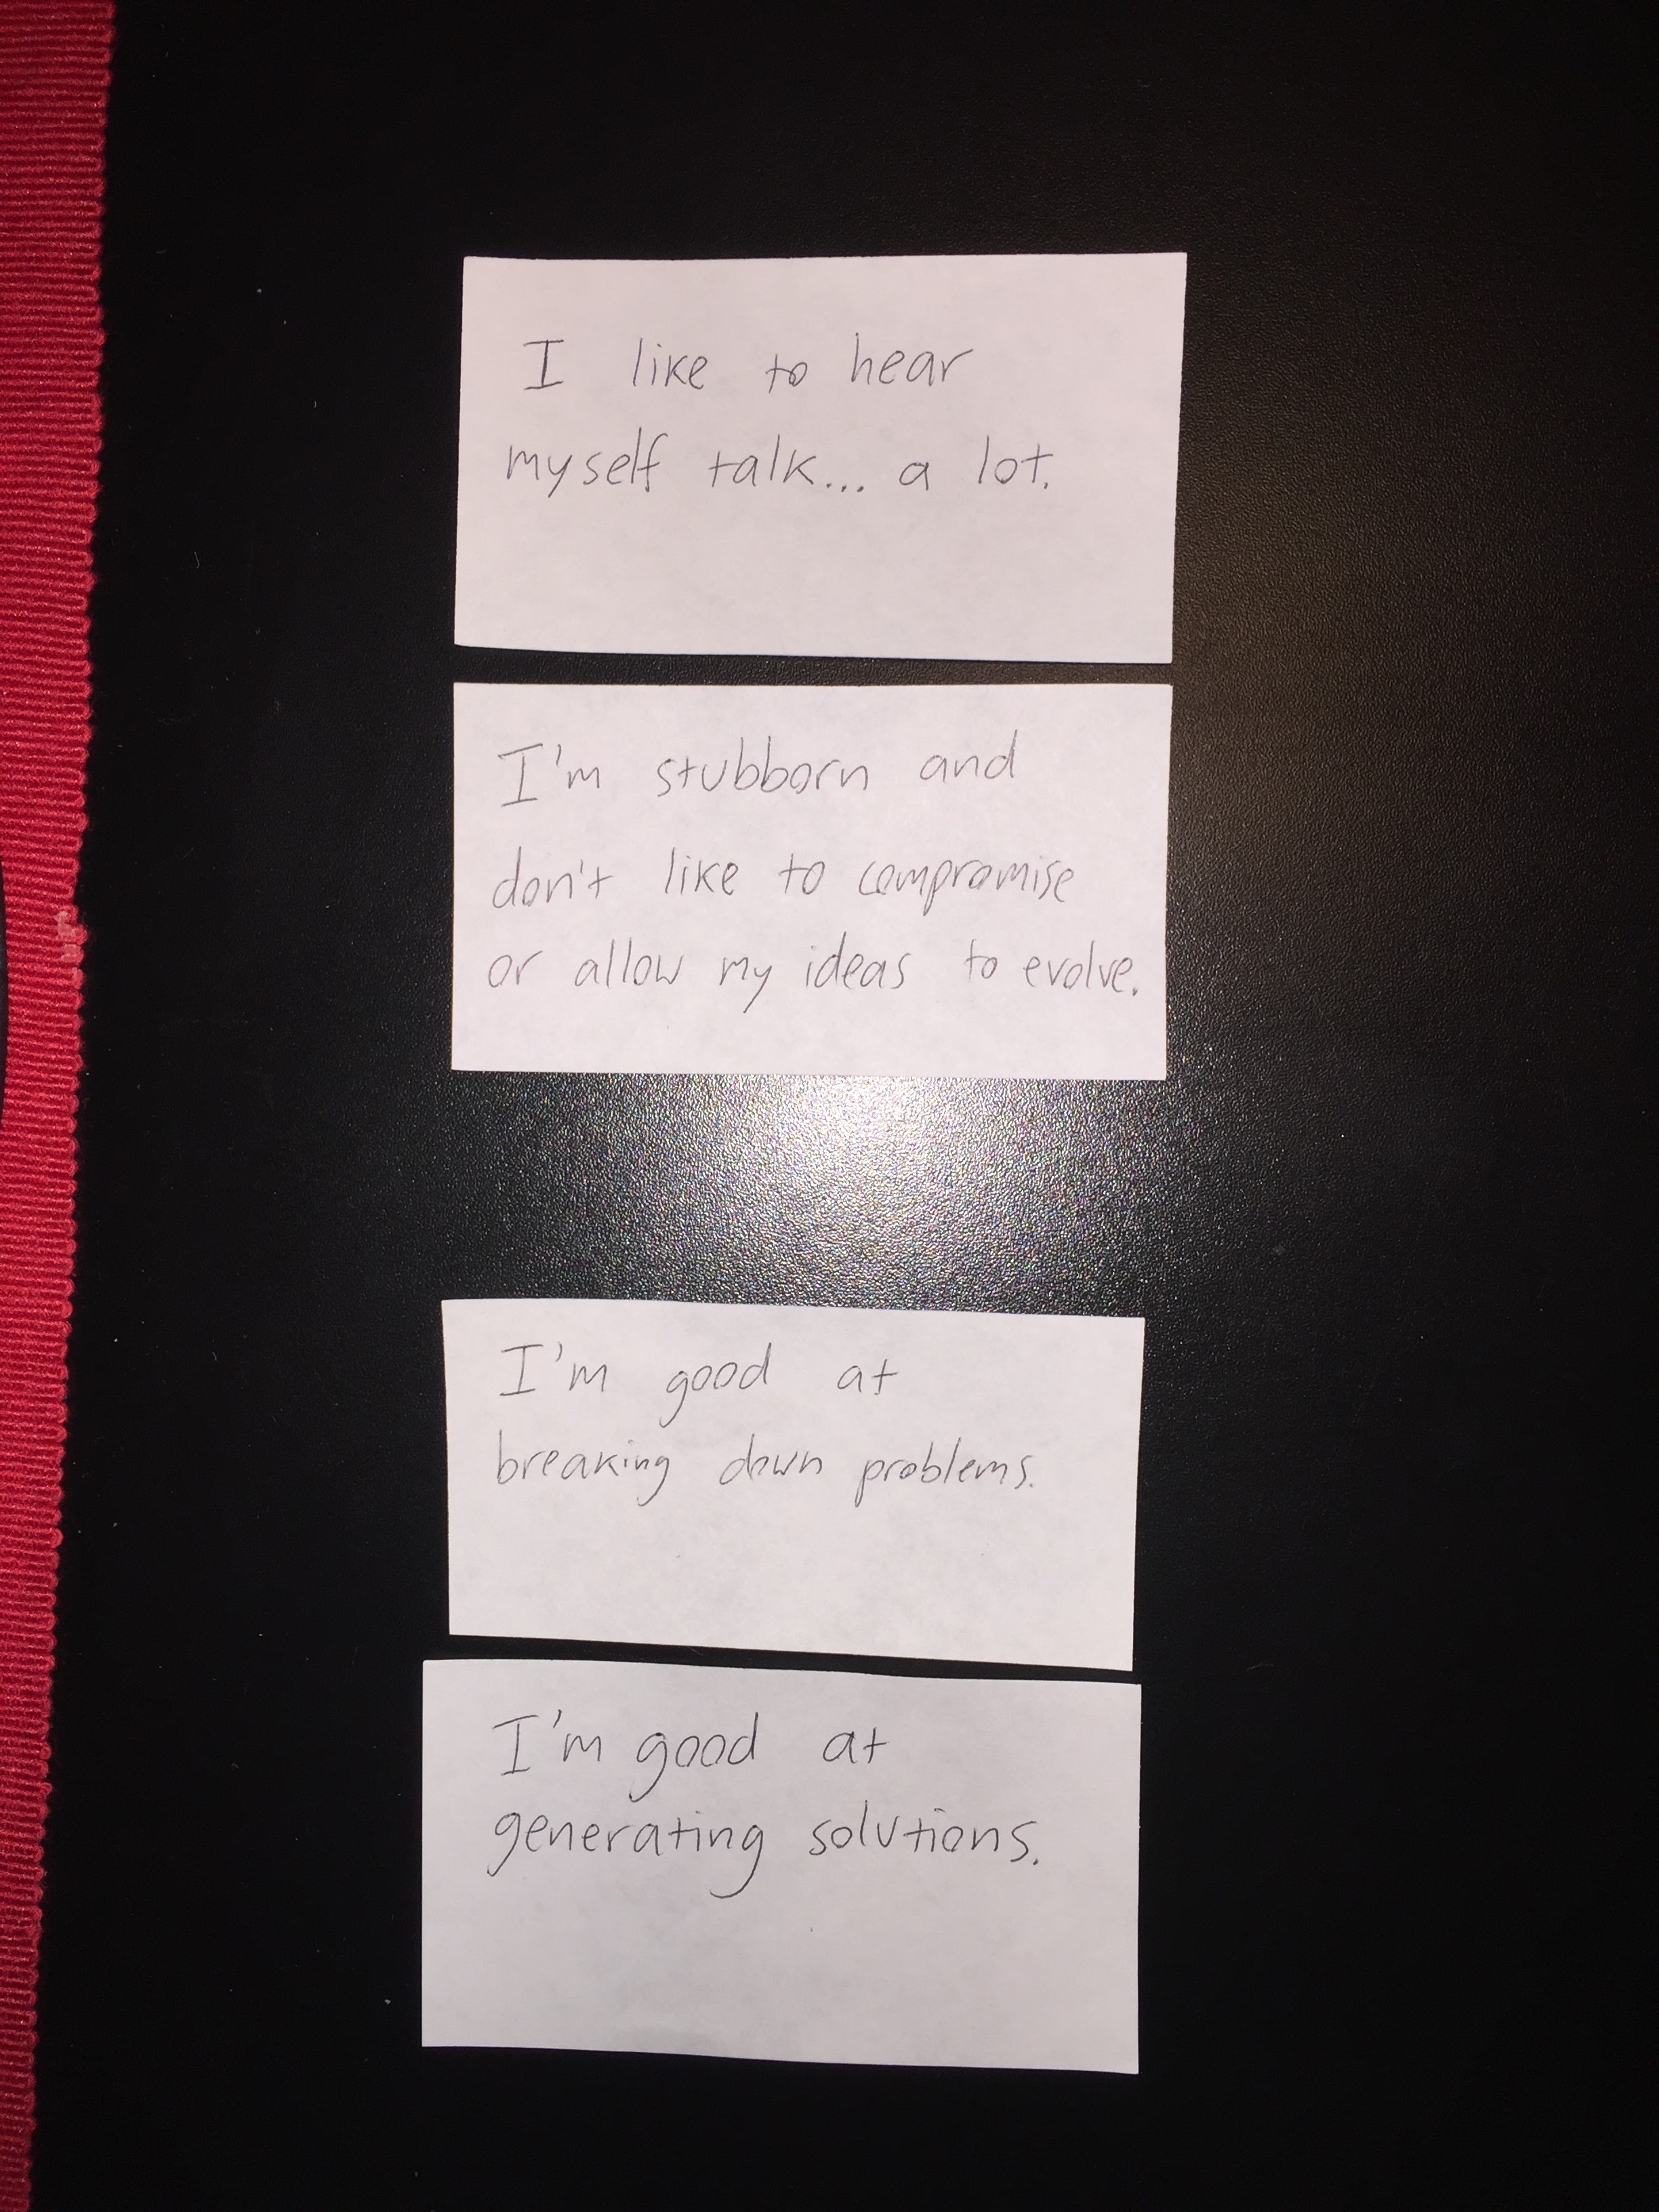 I like to hear
myself talk... a lot.
I'm stubborn and
don't like to compromise
or allow my ideas to evolve.
I'm good at
breaking down problems.
I'm good at
generating solutions.